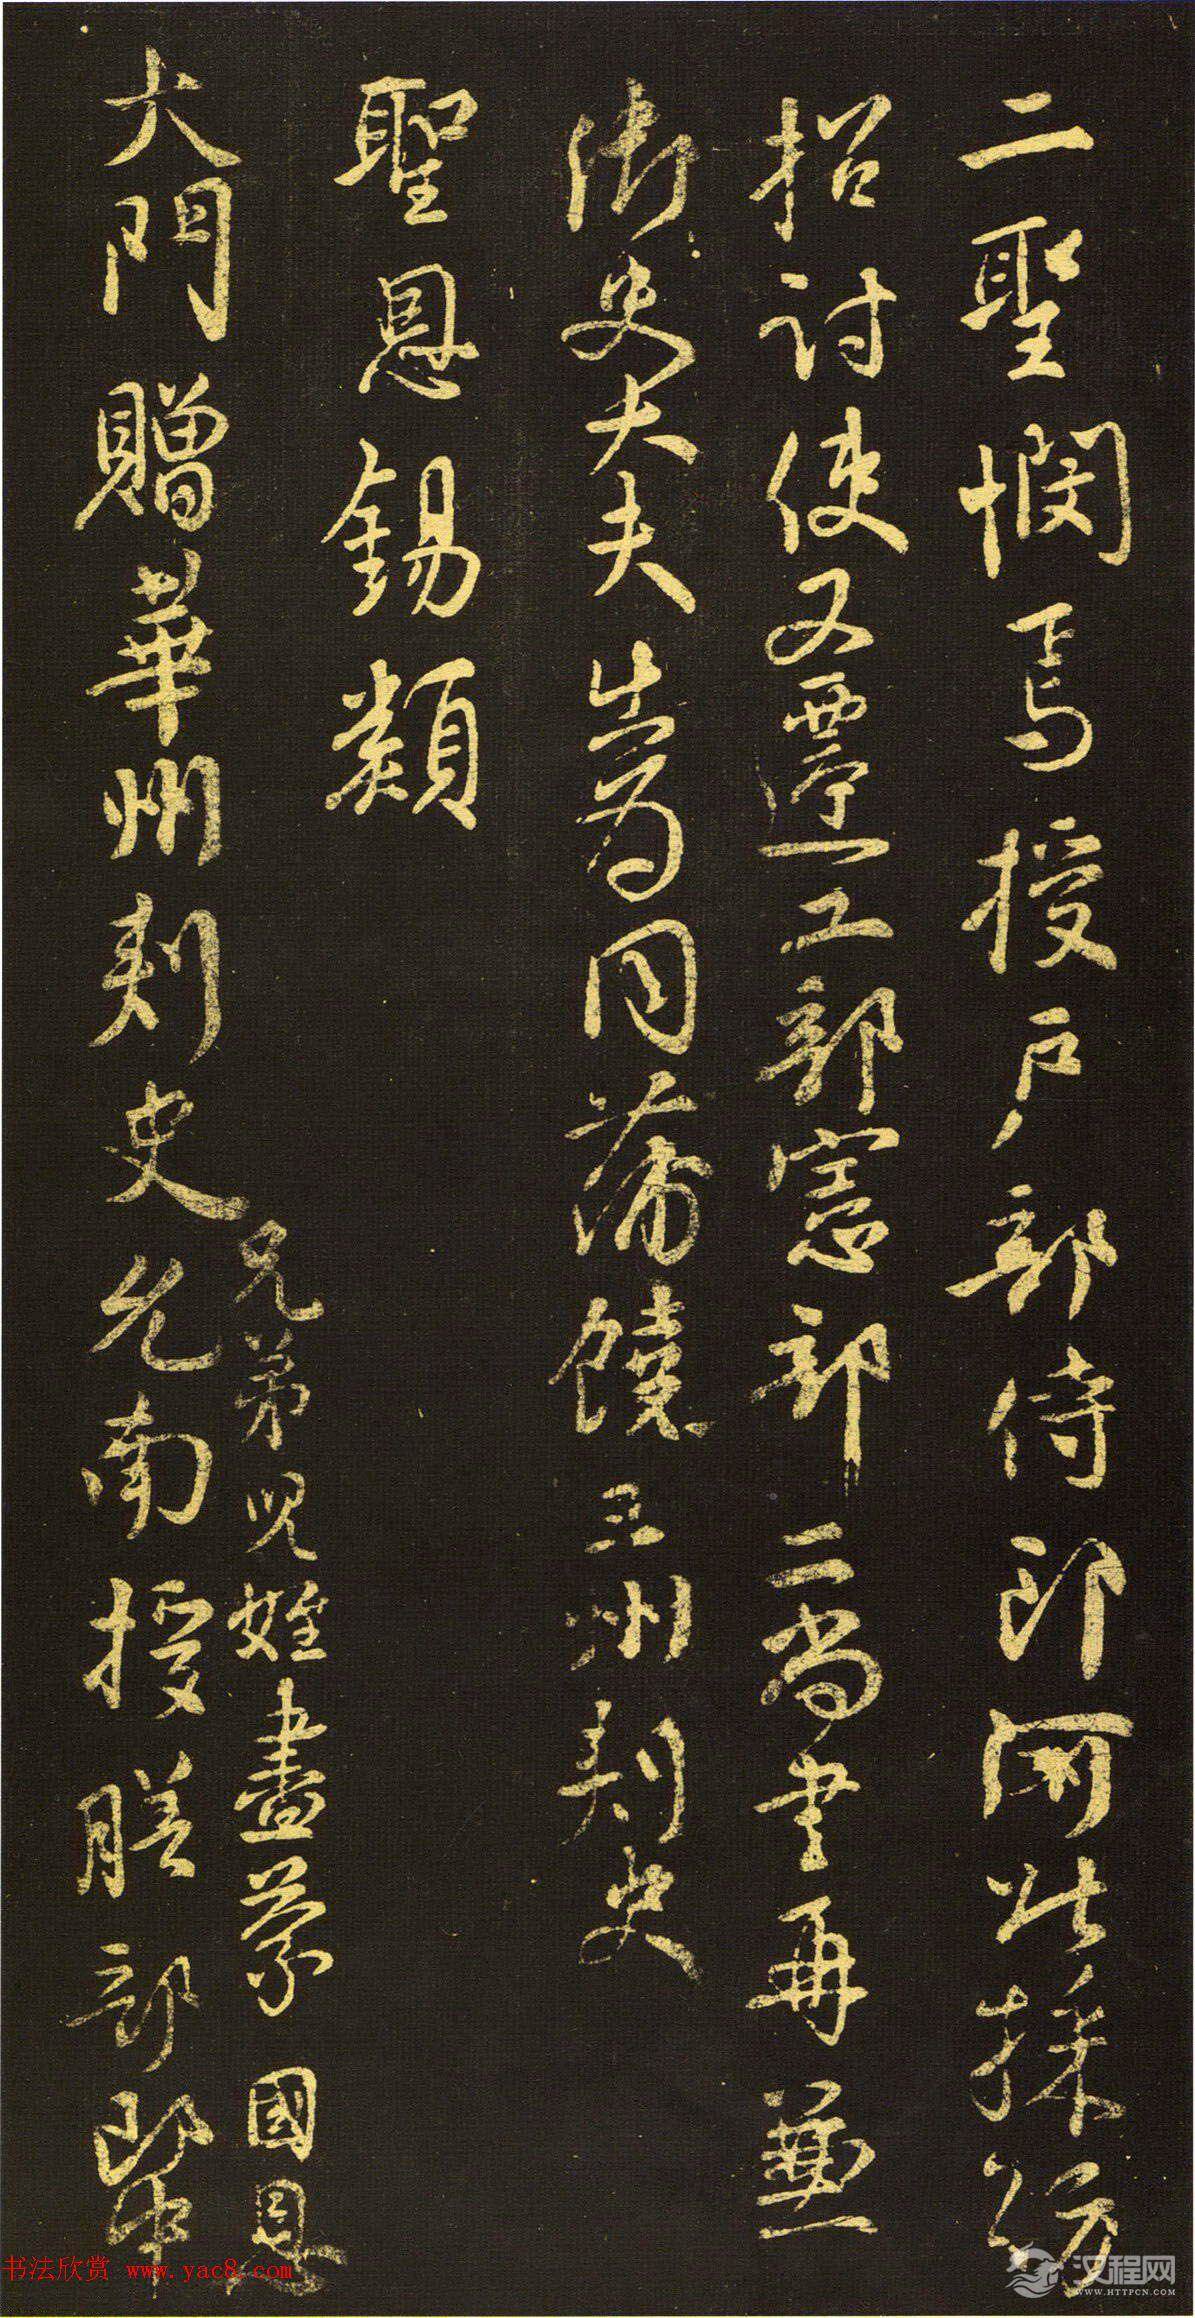 二聖憫焉授戶部侍郎河北採訪
招討使又遷工部憲部二尚書再兼
御史大夫出為同蒲饒三州刺史
聖恩錫類
兄弟兒姪盡蒙國恩
大門贈華州刺史允南授膳部郎中
书法欣赏 www.yac8.com
汉程网
WWW.HTTPCN.COM